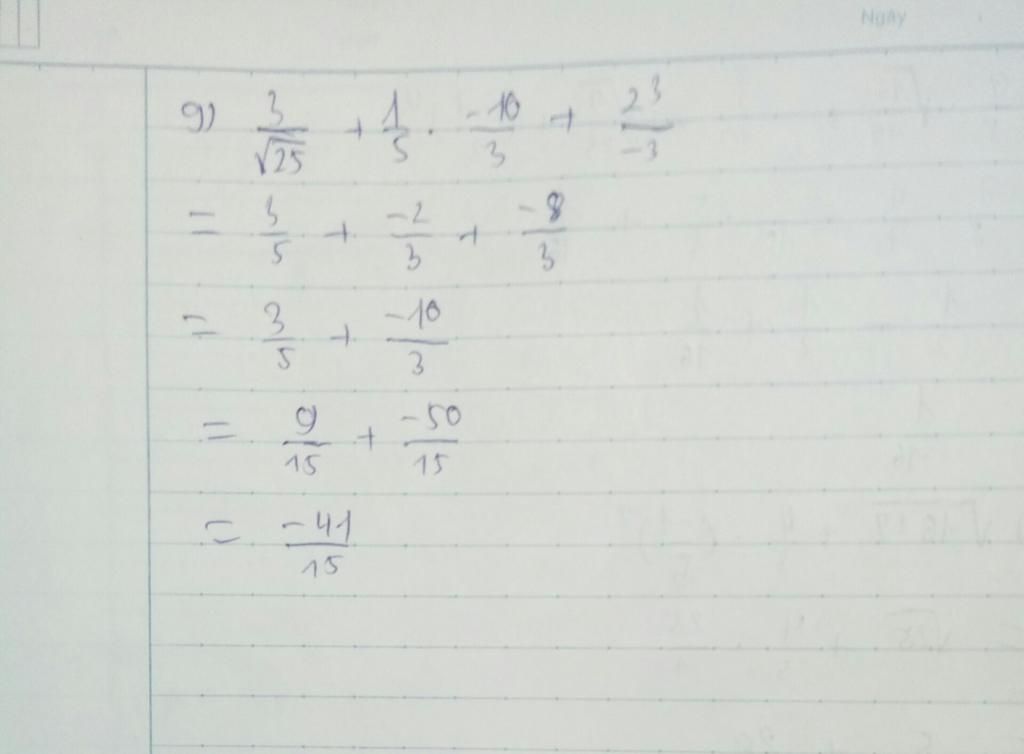 Ngày
g) 3/√25 + 1/5 . -10/3 + 2³/-3
= 3/5 + -2/3 + -8/3
= 3/5 + -10/3
= 9/15 + -50/15
= -41/15